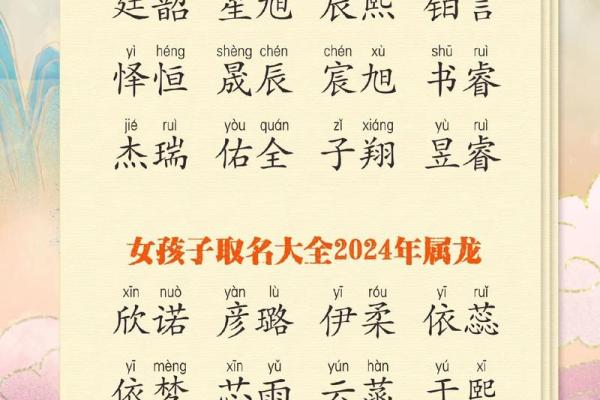 廷韶 星旭 辰熙 铂言
yì héng shèng chén chén xù shū ruì
怿恒 晟辰 宸旭 书睿
jié ruì yòu quán zǐ xiáng yù ruì
杰瑞 佑全 子翔 昱睿
女孩子取名大全2024年属龙
xīn nuò yàn lù yī róu yī ruǐ
欣诺 彦璐 伊柔 依蕊
yī mèng xīn yǔ yún hàn yú xī
依梦 芯雨 云菡 于熙